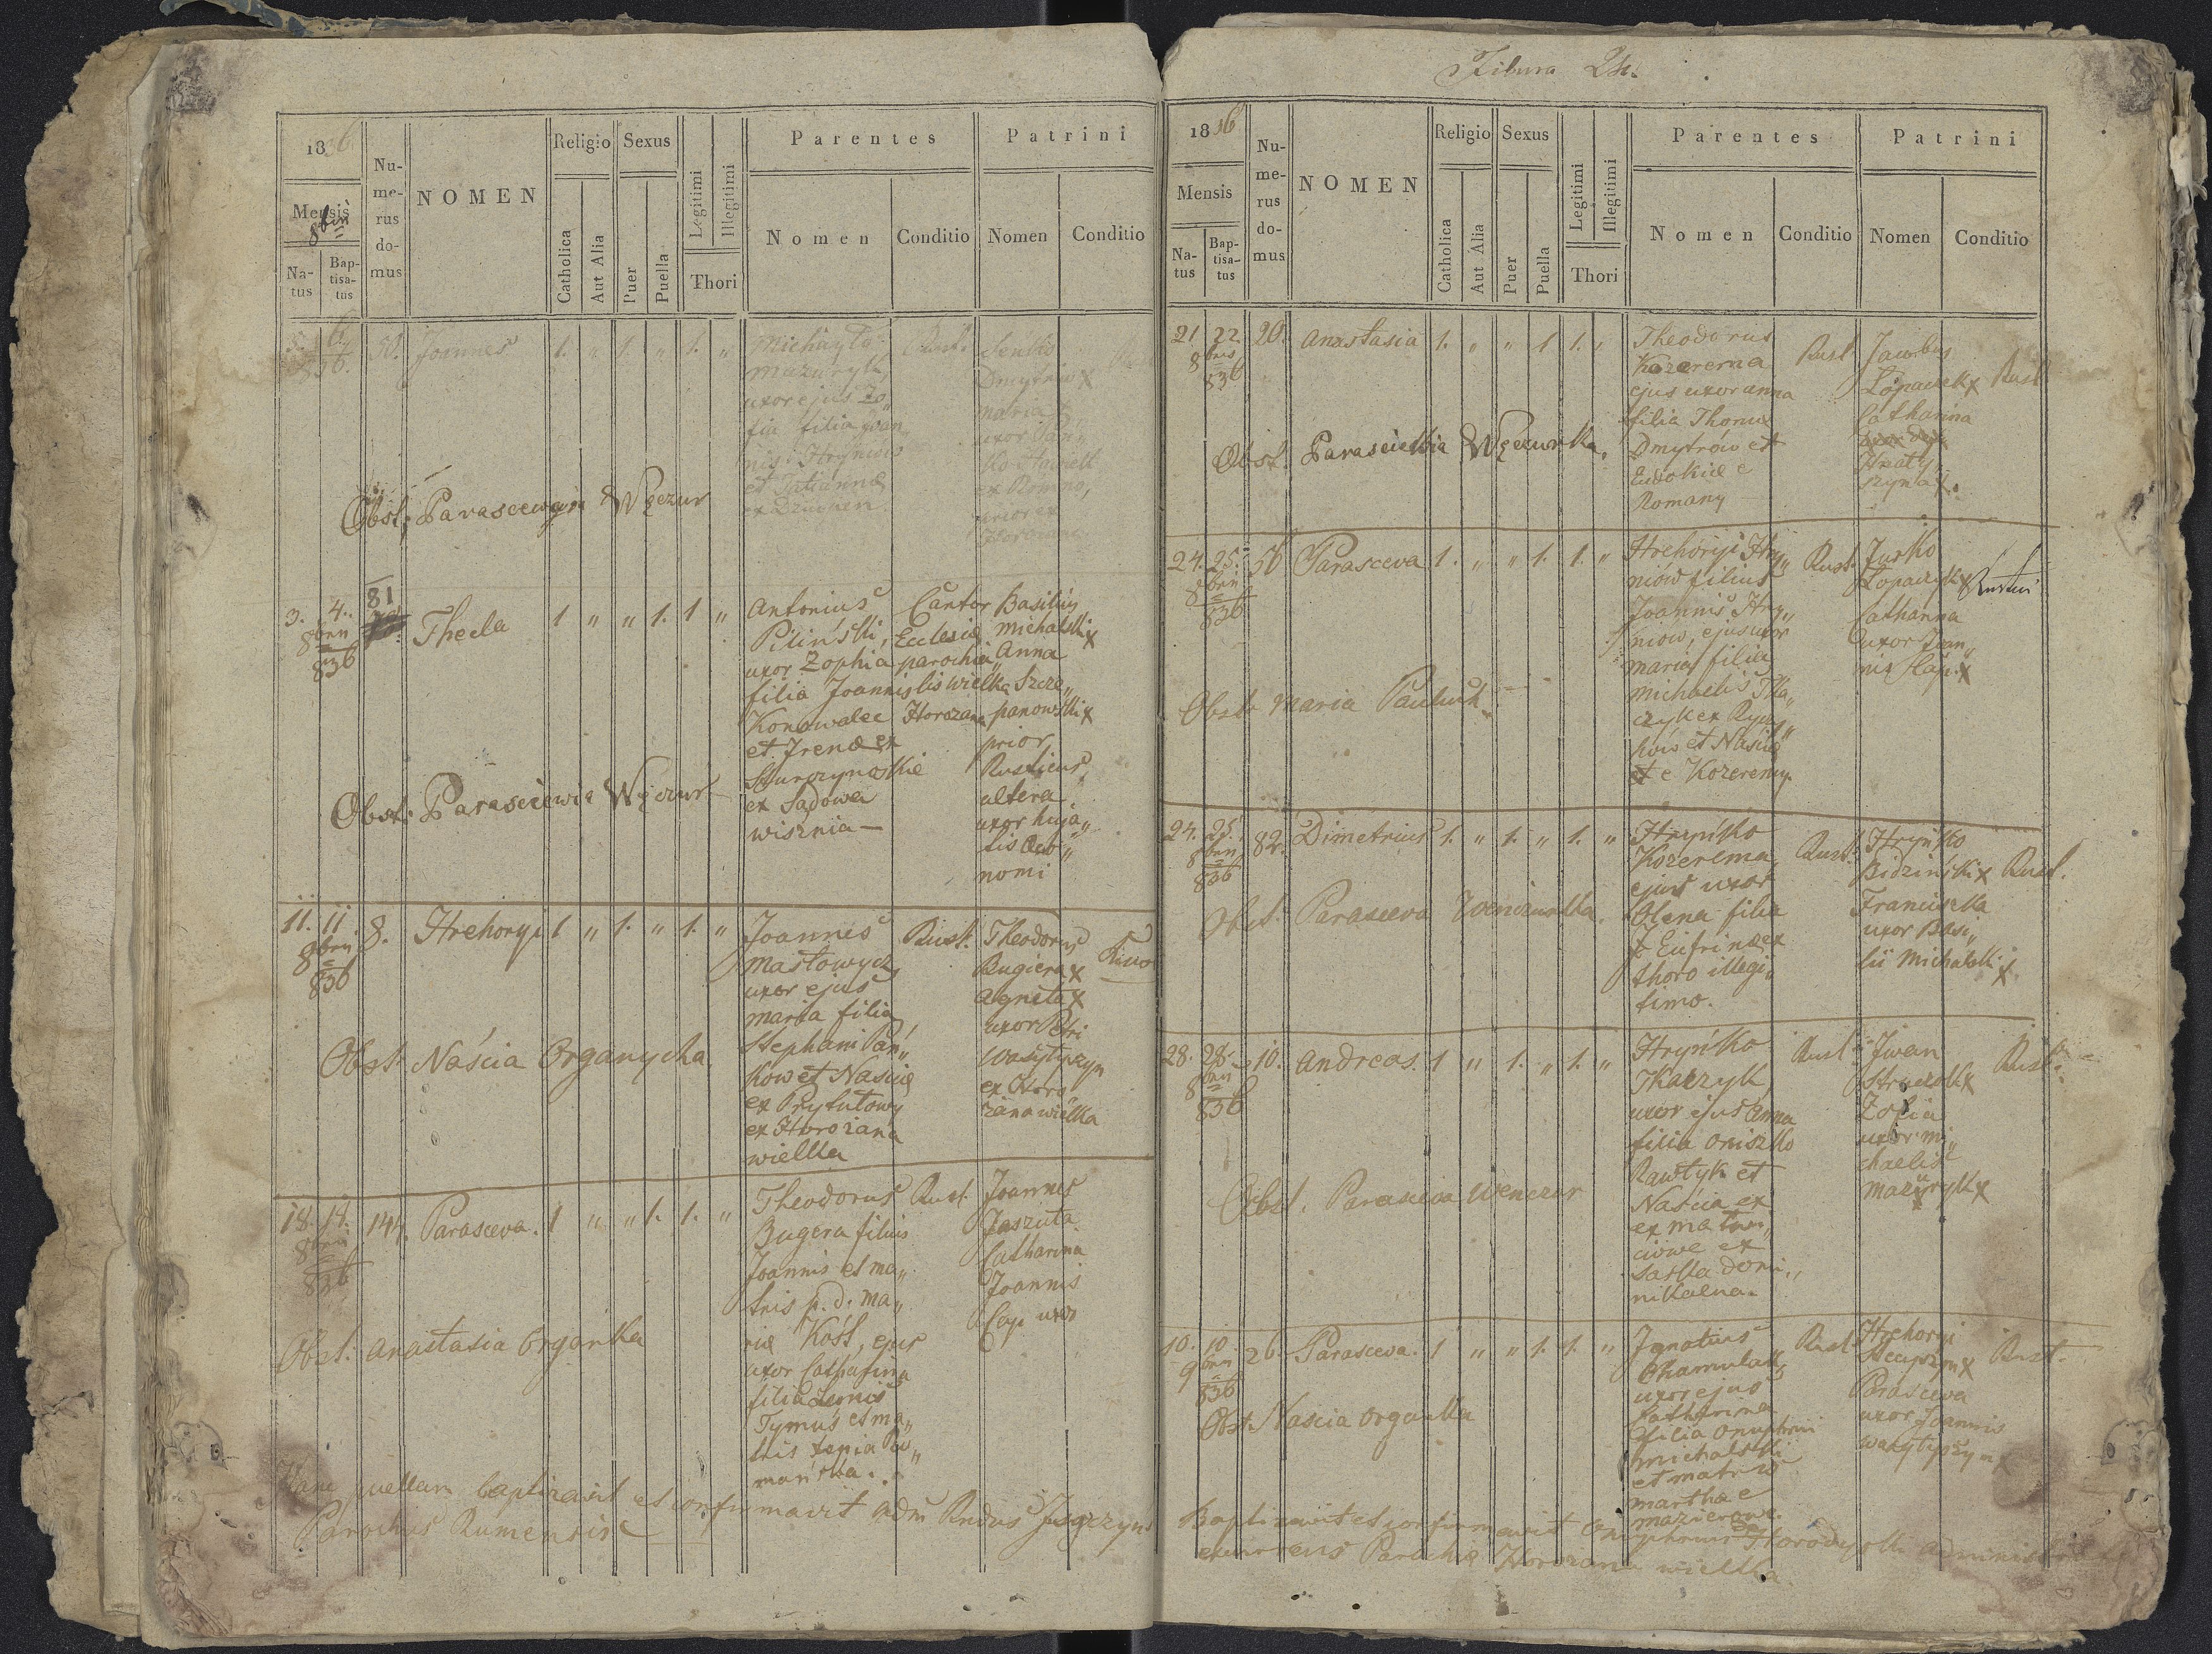 1836
Mensis
8bris
Natus
Baptisatus
Numerus domus
NOMEN
Religio
Catholica
Aut Alia
Sexus
Puer
Puella
Legitimi
Illegitimi
Thori
Parentes
Nomen
Conditio
Patrini
Nomen
Conditio
6
836
50.
Joannes
1. „ 1. „ 1. „
Michayło
Mazuryk,
uxor ejus Zo„
fia filia Joan„
nis Hryniow
et Tatianna
Rust.
Senko
Dmytrów X
maria X
uxor Pań„
ko Hawrełk
ex Romno,
prior ex
Horozana
Obst: Parascewia Węczur
3. 4.
8bris
836
81
Thecla
1 „ „ 1. 1 „
Antonius
Piliński,
uxor Zophia
filia Joannis
Konowalec
et Irenæ ex
Sturczynoskie
ex Sądowa
wisznia —
Cantor
Ecclesiæ
parochia„
lis wielka
Horozana
Basilius
Michalski X
Anna
Szcze„
panowski X
prior
Rusticus,
altera
uxor huja„
tis Oeco„
nomi
Obst: Parasciewia Węczur
11. 11
8bris
836
8.
Hrehoryi
1 „ 1. „ 1. „
Joannes
Masłowycz,
uxor ejus
maria filia
Stephani Pań„
ków et Nasciæ
ex Prytułowy
ex Horozana
wielka
Rust.
Theodorus
Bugiera X
Agneta X
uxor Petri
Wasylyszyn
ex Horo
zana wielka
Obst Naścia Organycha
18. 19.
8bris
836
144.
Parasceva.
1 „ „ 1. 1. „
Theodorus
Bugera filius
Joannis et ma„
tris p. d. Ma„
riæ Kość, ejus
uxor Catharina
filia Lesnis
Tymuś et ma„
tris
mańska.
Rust
Joannes
Jaszuta
Catharina
Joannis
Cap uxor
Obst: Anastasia Organka
Hanc puellam baptizavit et confirmavit adm Rndus
Parochus Rumensis
Zibura 24.
1836
Mensis
Natus
Baptisatus
Numerus domus
NOMEN
Religio
Catholica
Aut Alia
Sexus
Puer
Puella
Legitimi
Illegitimi
Thori
Parentes
Nomen
Conditio
Patrini
Nomen
Conditio
21 22
8bris
836
20.
Anastasia
1. „ „ 1 1. „
Theodorus
Kozerema
ejus uxor anna
filia Thoma
Dmytrów et
Eudokiæ e
Romany
Rust
Jacobus
Łopaczek X
Catharina
Rust
Obst. Parasciewia Węczurka.
24. 25.
8bris
836
56
Parasceva
1. „ „ 1. 1. „
Hrehoryi Hry„
niów filius
Joannis Hry„
niow, ejus uxor
maria filia
michaelis Tka„
czyk ex Rycy„
ków et Nasciæ
e Kozeremy.
Rust.
Jurko
Łopaczyk X
Catharina
uxor Joan„
nis Cap. X
Rustici
Obst. Maria Pauluch
24. 25.
8bris
836
82.
Dimetrius
1. „ 1. „ 1. „
Hryńko
Kozerema,
ejus uxor
Olena filia
Eufrinæ ex
thoro illegi„
timo.
Rust.
Hryńko
Bidziński X
Franciszka
uxor Basi„
lii Michalski X
Rust.
Obst. Parasceva Wenczurka.
28. 28.
8bris
836
10.
Andreas.
1 „ 1. „ 1. „
Hryńko
Tkaczyk,
uxor ejus Anna
filia Oniszko
Rawłyk et
Naścia ex
Rust
Iwan
Zofia
uxor mi„
chaelis
mazuryk X
Rust.
Obst. Parasceva Wenczur
10. 10.
9bris
836
26.
Parasceva.
1 „ „ 1. 1. „
Ignatius
Chamulak,
uxor ejus
Catharina
filia Onuphrii
Michalski
et matris
Marthæ e
Rust
Hrehoryi
Parasceva
uxor Joannis
Wasylyszyn X
Rust.
Obst. Nascia Organka
Baptizavit et confirmavit Onuphrius Horodyski administrator
excurrens Parochiæ Horozana wielka